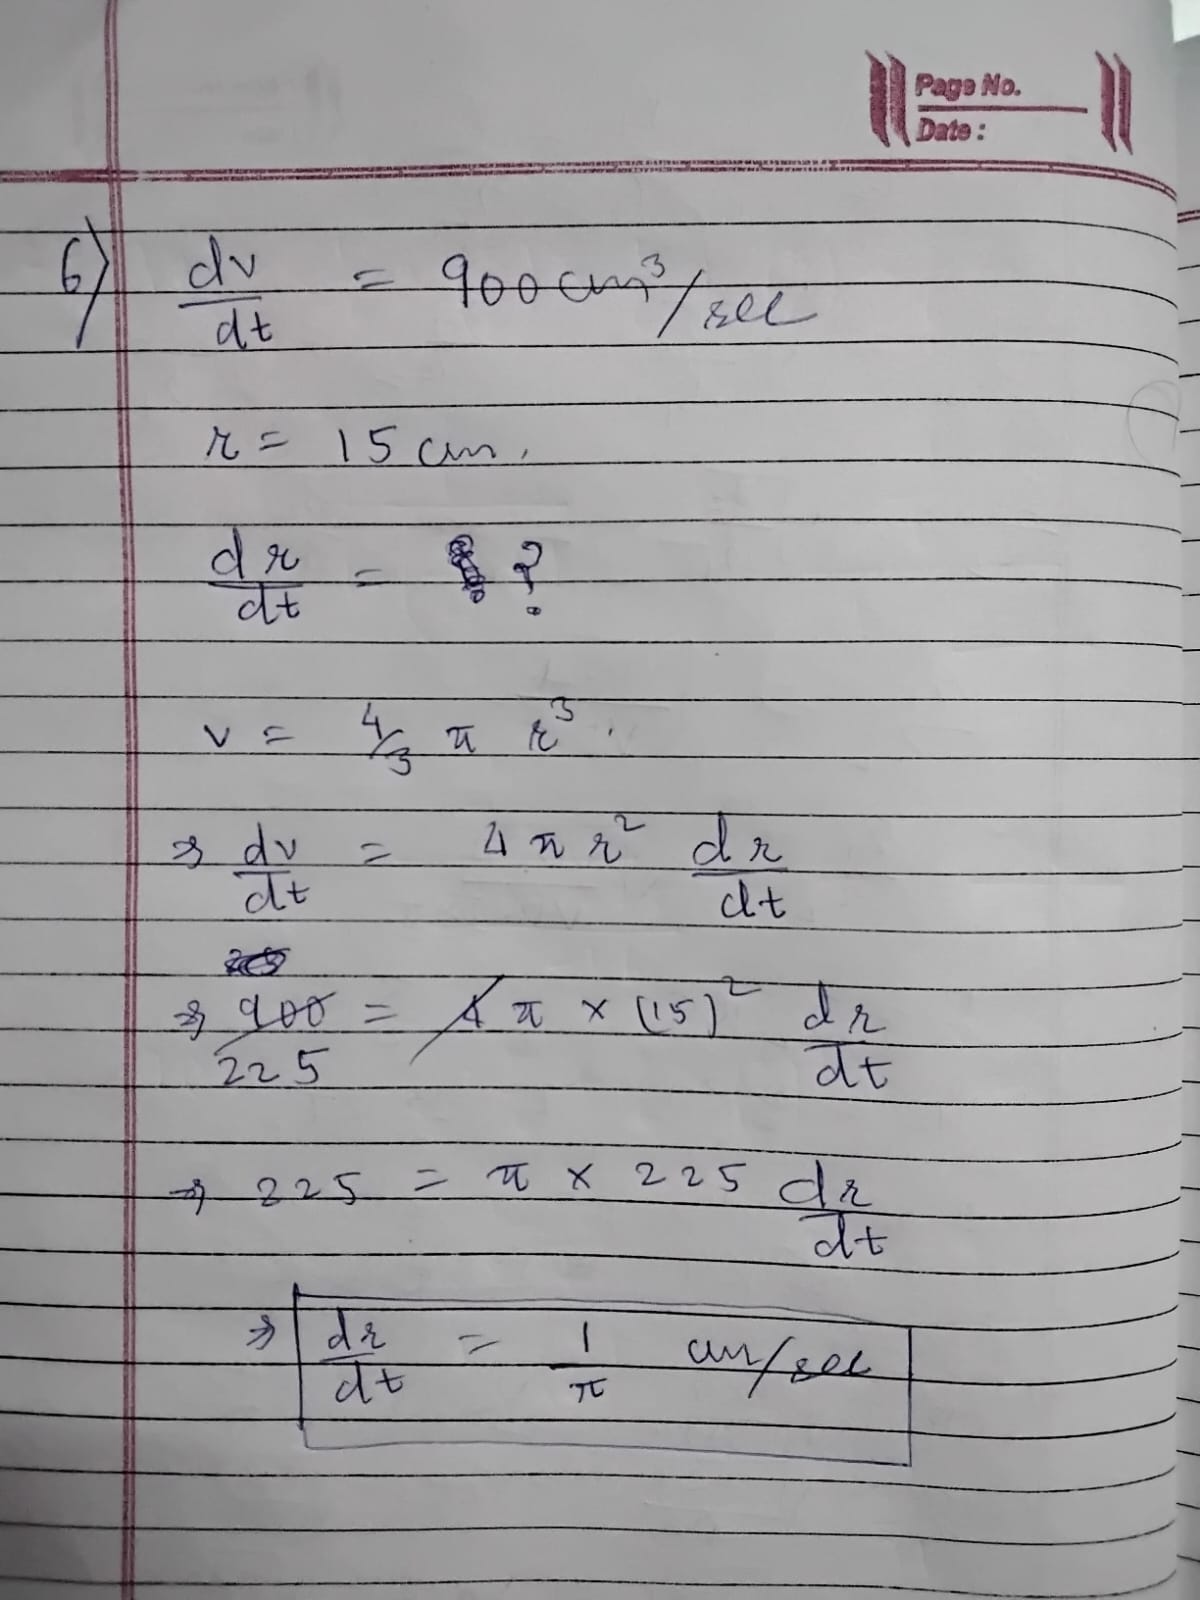 Page No.
Date :
6) dv/dt = 900 cm³/sec
r = 15 cm.
dr/dt = ?
v = 4/3 π r³.
⇒ dv/dt = 4 π r² dr/dt
⇒ 900 = 4 π × (15)² dr/dt
225
⇒ 225 = π × 225 dr/dt
⇒ dr/dt = 1/π cm/sec